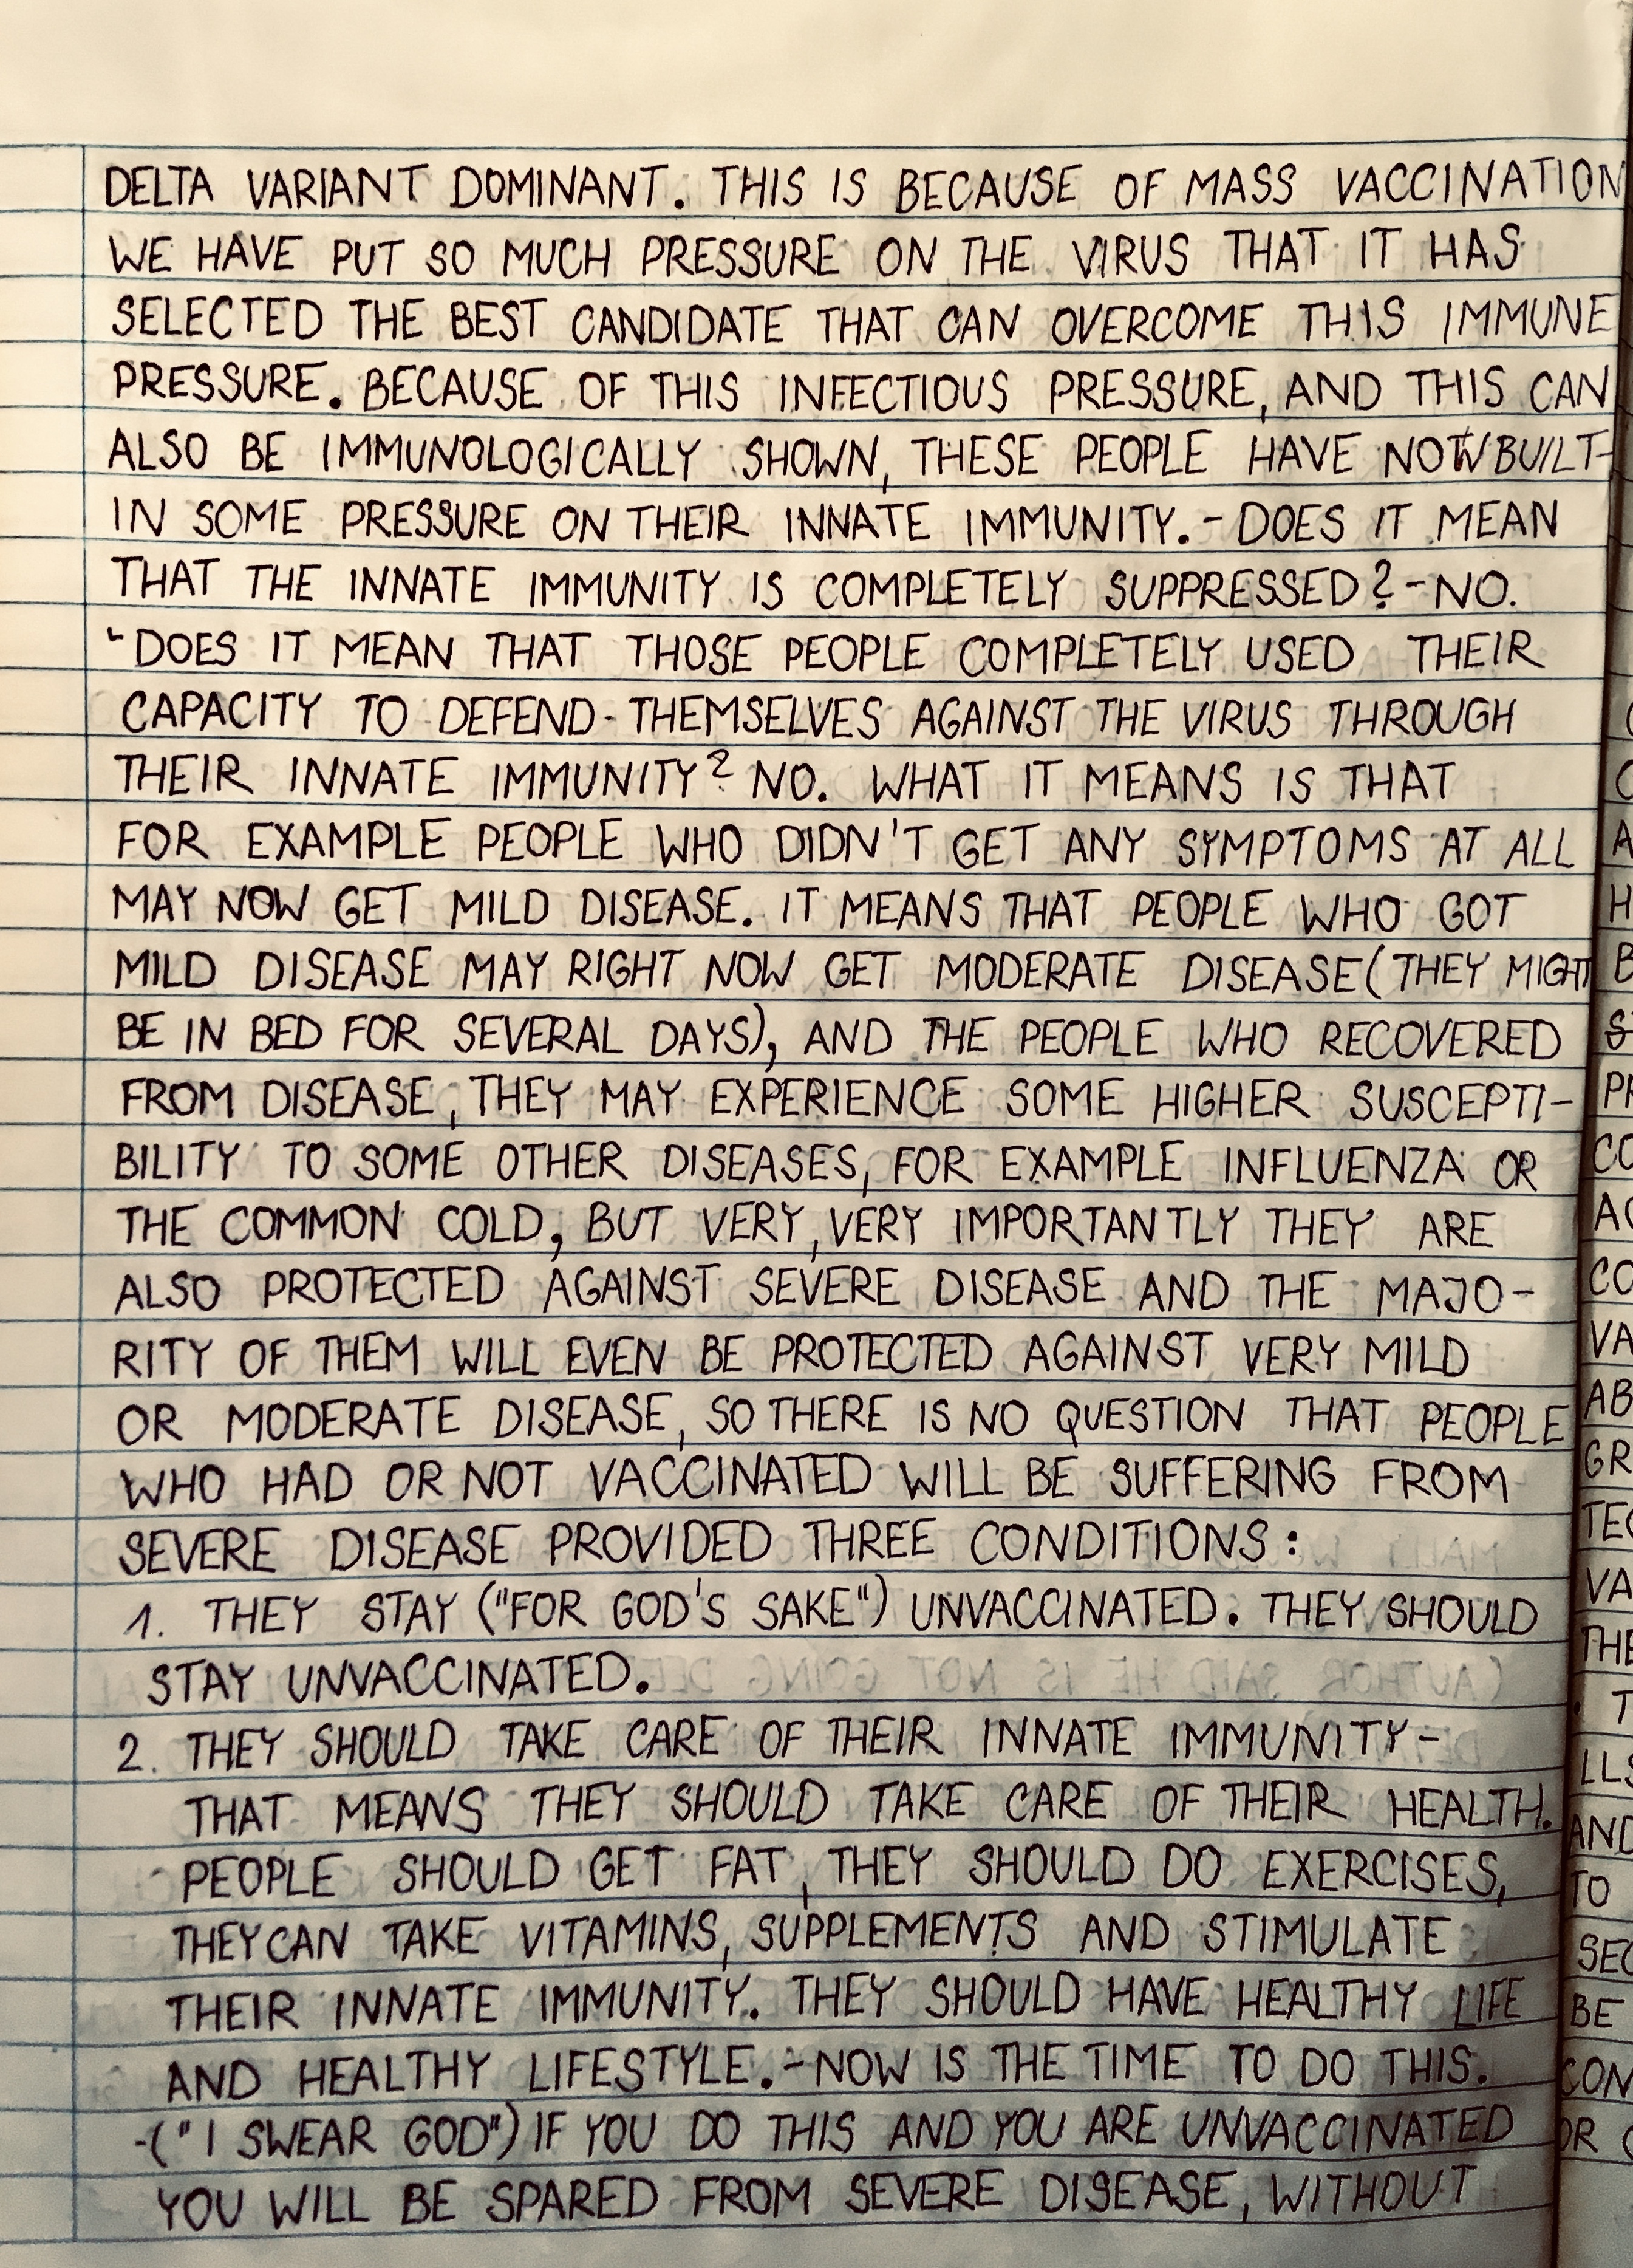 DELTA VARIANT DOMINANT. THIS IS BECAUSE OF MASS VACCINATION
WE HAVE PUT SO MUCH PRESSURE ON THE VIRUS THAT IT HAS
SELECTED THE BEST CANDIDATE THAT CAN OVERCOME THIS IMMUNE
PRESSURE. BECAUSE OF THIS INFECTIOUS PRESSURE, AND THIS CAN
ALSO BE IMMUNOLOGICALLY SHOWN, THESE PEOPLE HAVE NOW BUILT-
IN SOME PRESSURE ON THEIR INNATE IMMUNITY. - DOES IT MEAN
THAT THE INNATE IMMUNITY IS COMPLETELY SUPPRESSED? - NO.
- DOES IT MEAN THAT THOSE PEOPLE COMPLETELY USED THEIR
CAPACITY TO DEFEND - THEMSELVES AGAINST THE VIRUS THROUGH
THEIR INNATE IMMUNITY? NO. WHAT IT MEANS IS THAT
FOR EXAMPLE PEOPLE WHO DIDN'T GET ANY SYMPTOMS AT ALL
MAY NOW GET MILD DISEASE. IT MEANS THAT PEOPLE WHO GOT
MILD DISEASE MAY RIGHT NOW GET MODERATE DISEASE (THEY MIGHT
BE IN BED FOR SEVERAL DAYS), AND THE PEOPLE WHO RECOVERED
FROM DISEASE, THEY MAY EXPERIENCE SOME HIGHER SUSCEPTI-
BILITY TO SOME OTHER DISEASES, FOR EXAMPLE INFLUENZA OR
THE COMMON COLD, BUT VERY, VERY IMPORTANTLY THEY ARE
ALSO PROTECTED AGAINST SEVERE DISEASE AND THE MAJO-
RITY OF THEM WILL EVEN BE PROTECTED AGAINST VERY MILD
OR MODERATE DISEASE, SO THERE IS NO QUESTION THAT PEOPLE
WHO HAD OR NOT VACCINATED WILL BE SUFFERING FROM
SEVERE DISEASE PROVIDED THREE CONDITIONS:
1. THEY STAY ("FOR GOD'S SAKE") UNVACCINATED. THEY SHOULD
STAY UNVACCINATED.
2. THEY SHOULD TAKE CARE OF THEIR INNATE IMMUNITY -
THAT MEANS THEY SHOULD TAKE CARE OF THEIR HEALTH.
PEOPLE SHOULD GET FAT, THEY SHOULD DO EXERCISES,
THEY CAN TAKE VITAMINS, SUPPLEMENTS AND STIMULATE
THEIR INNATE IMMUNITY. THEY SHOULD HAVE HEALTHY LIFE
AND HEALTHY LIFESTYLE. - NOW IS THE TIME TO DO THIS.
- ("I SWEAR GOD") IF YOU DO THIS AND YOU ARE UNVACCINATED
YOU WILL BE SPARED FROM SEVERE DISEASE, WITHOUT